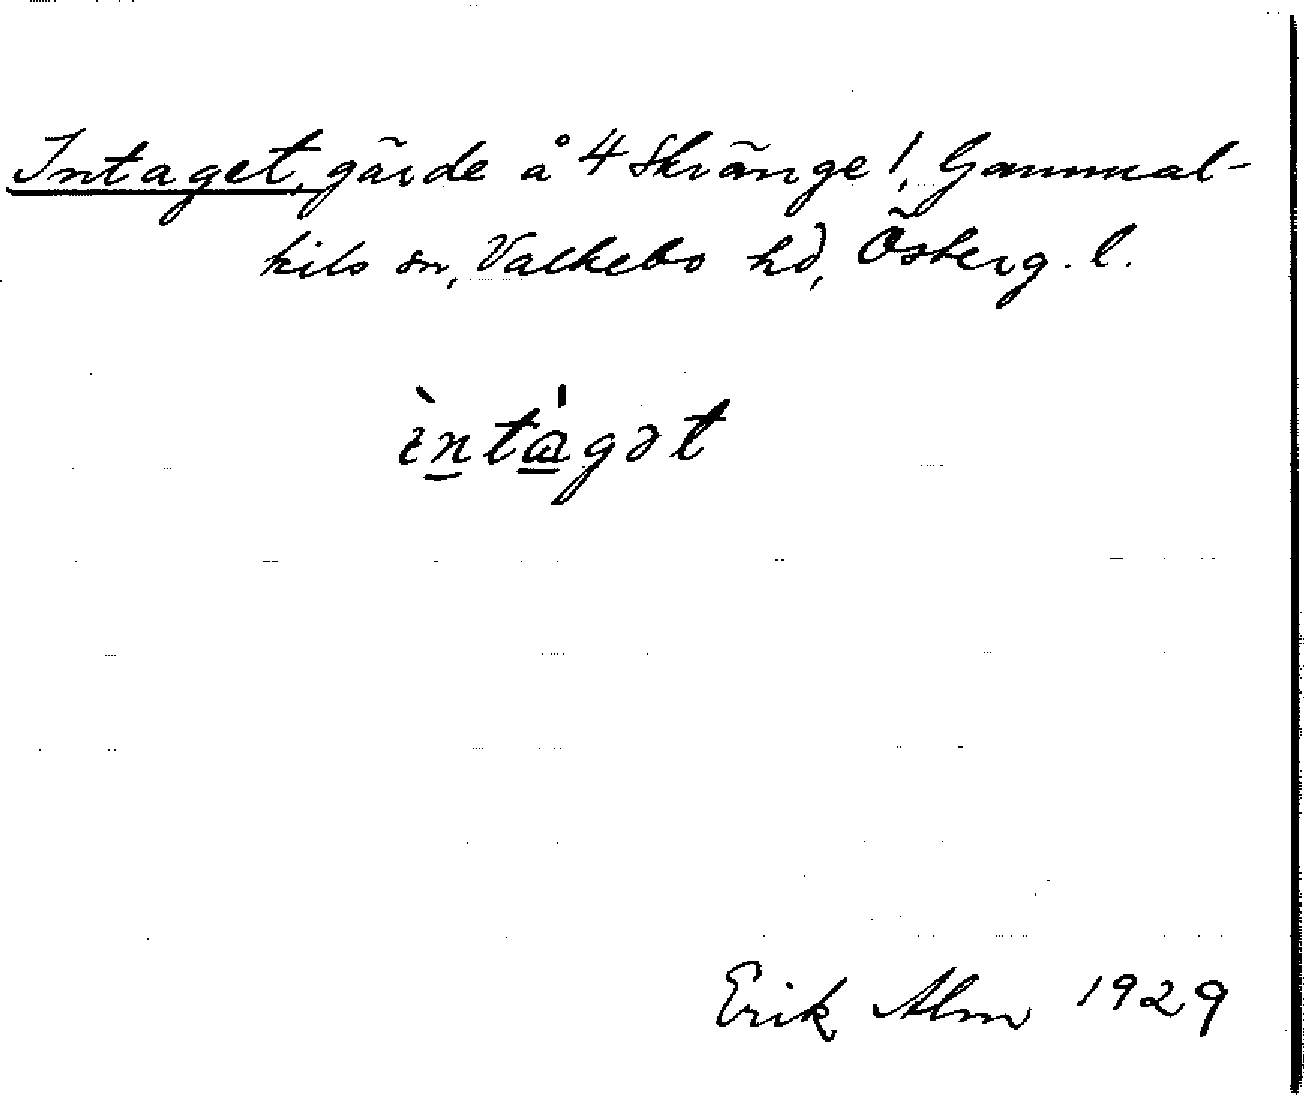 Intaget, gärde å 4 Skränge!, Gammal-
kils sn, Valkebo hd, Österg. l.
ìntàgət
Erik Alm 1929